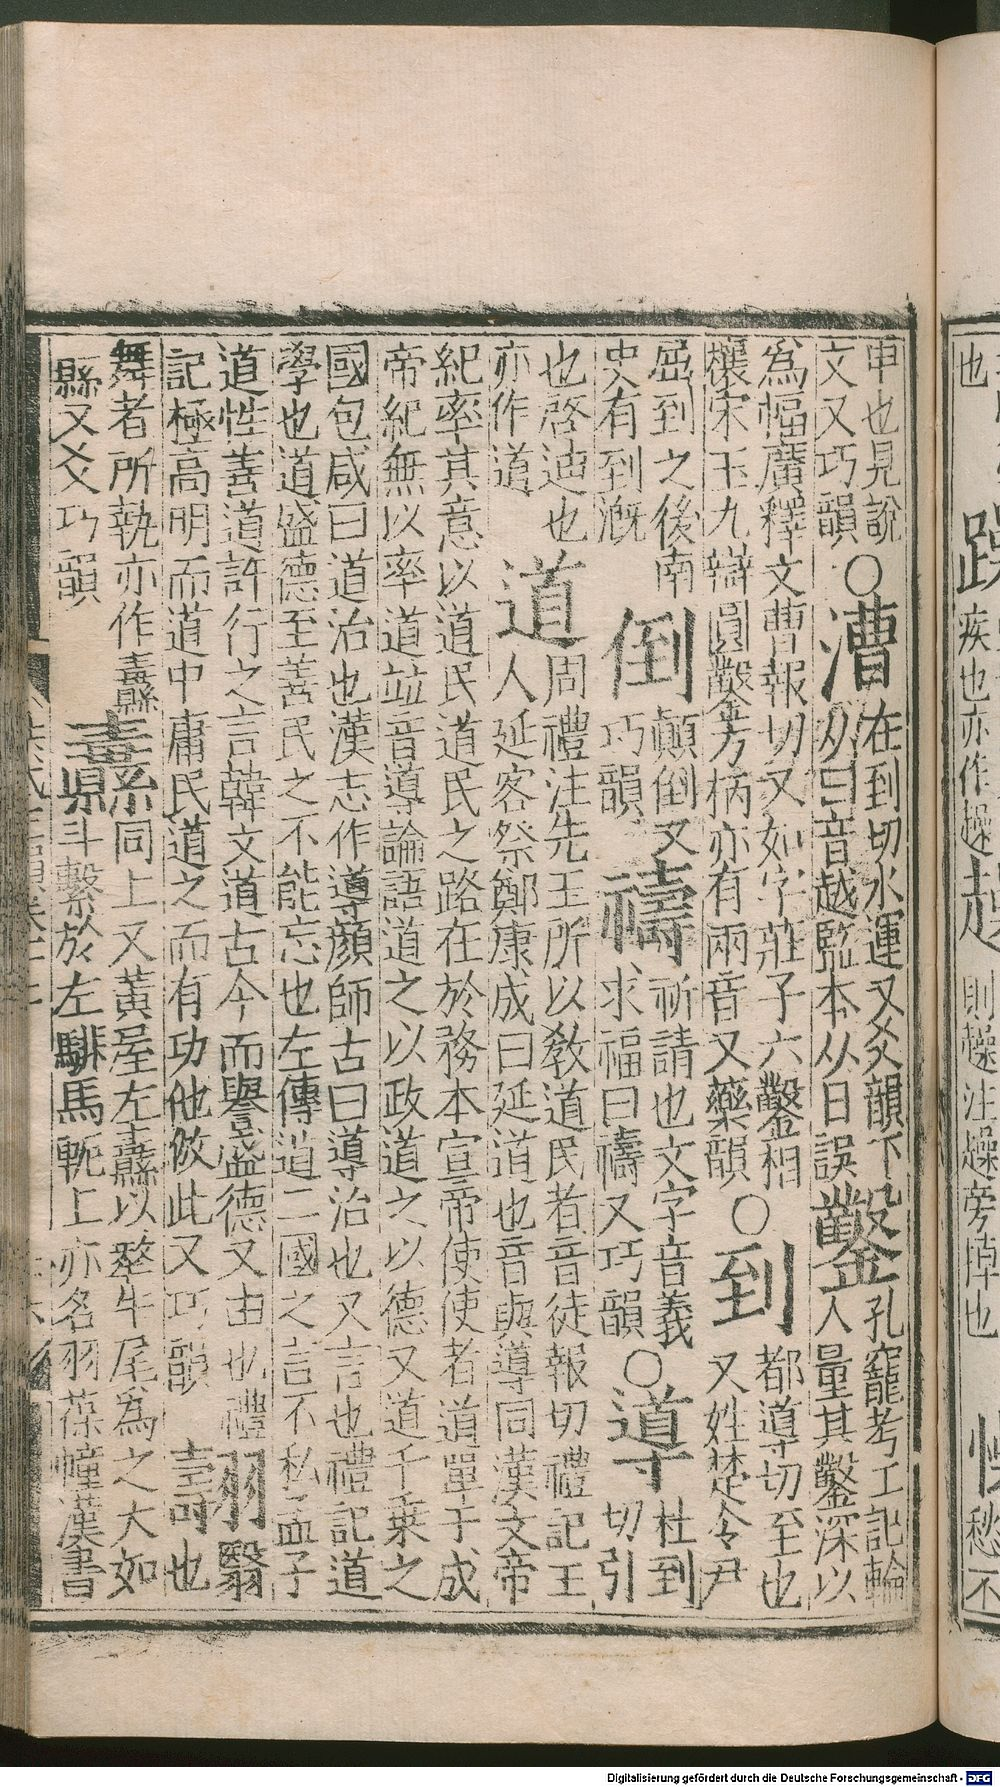 也
疾也亦作趮
愁不
申也見說
文又巧韻○漕在到切水運又爻韻下
从曰音越監本从日誤鑿孔竅考工記輪
人量其鑿深以
爲幅廣釋文曹報切又如字莊子六鑿相
攘宋玉九辯圓鑿方枘亦有兩音又藥韻○到都導切至也
又姓楚令尹
屈到之後南
史有到漑倒顛倒又
巧韻禱祈請也文字音義
求福曰禱又巧韻○導杜到
切引
也啓迪也
亦作道道周禮注先王所以教道民者音徒報切禮記王
人延客祭鄭康成曰延道也音與導同漢文帝
紀率其意以道民道民之路在於務本宣帝使使者道單于成
帝紀無以率道竝音導論語道之以政道之以德又道千乘之
國包咸曰道治也漢志作導顏師古曰導治也又言也禮記道
學也道盛德至善民之不能忘也左傳道二國之言不私孟子
道性善道許行之言韓文道古今而譽盛德又由也禮
記極高明而道中庸民道之而有功他倣此又巧韻翿翳
也
舞者所執亦作纛
縣又爻巧韻纛同上又黃屋左纛以犛牛尾爲之大如
斗繫於左騑馬軛上亦名羽葆幢漢書
Digitalisierung gefördert durch die Deutsche Forschungsgemeinschaft - DFG